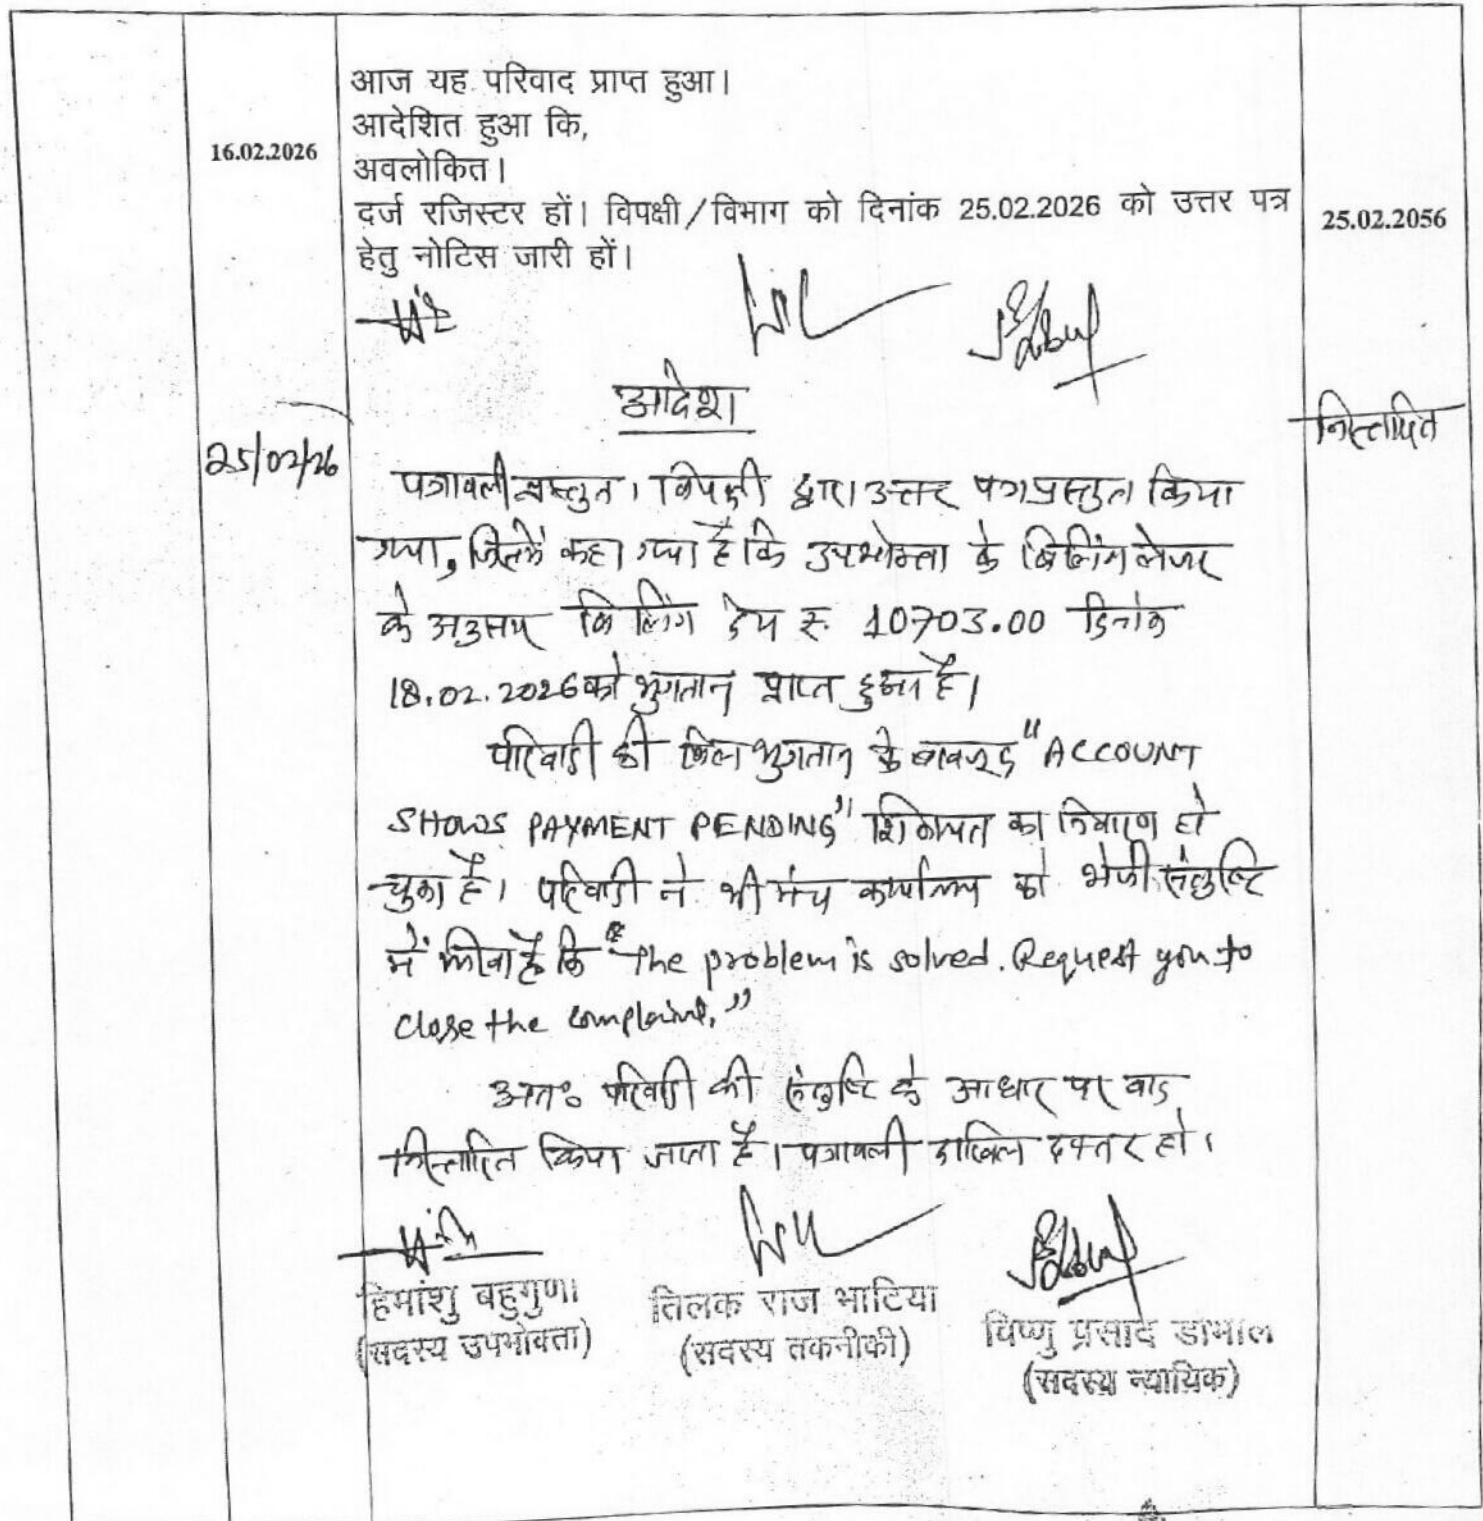 आज यह परिवाद प्राप्त हुआ।
आदेशित हुआ कि,
16.02.2026
अवलोकित।
दर्ज रजिस्टर हों। विपक्षी/विभाग को दिनांक 25.02.2026 को उत्तर पत्र
25.02.2056
हेतु नोटिस जारी हों।
आदेश
निस्तारित
25/02/26
पत्रावली प्रस्तुत। विपक्षी द्वारा उत्तर पत्र प्रस्तुत किया
गया, जिसमें कहा गया है कि उपभोक्ता के बिलिंग लेजर
के अनुसार बिलिंग देय रू. 10703.00 दिनांक
18.02.2026 को भुगतान प्राप्त हुआ है।
परिवादी की बिल भुगतान के बावजूद "ACCOUNT
SHOWS PAYMENT PENDING" शिकायत का निवारण हो
चुका है। परिवादी ने भी मंच कार्यालय को भेजी संतुष्टि
में लिखा है कि "The problem is solved. Request you to
close the complaint."
अतः परिवादी की संतुष्टि के आधार पर वाद
निस्तारित किया जाता है। पत्रावली दाखिल दफ्तर हो।
हिमांशु बहुगुणा
(सदस्य उपभोक्ता)
तिलक राज भाटिया
(सदस्य तकनीकी)
विष्णु प्रसाद डोभाल
(सदस्य न्यायिक)